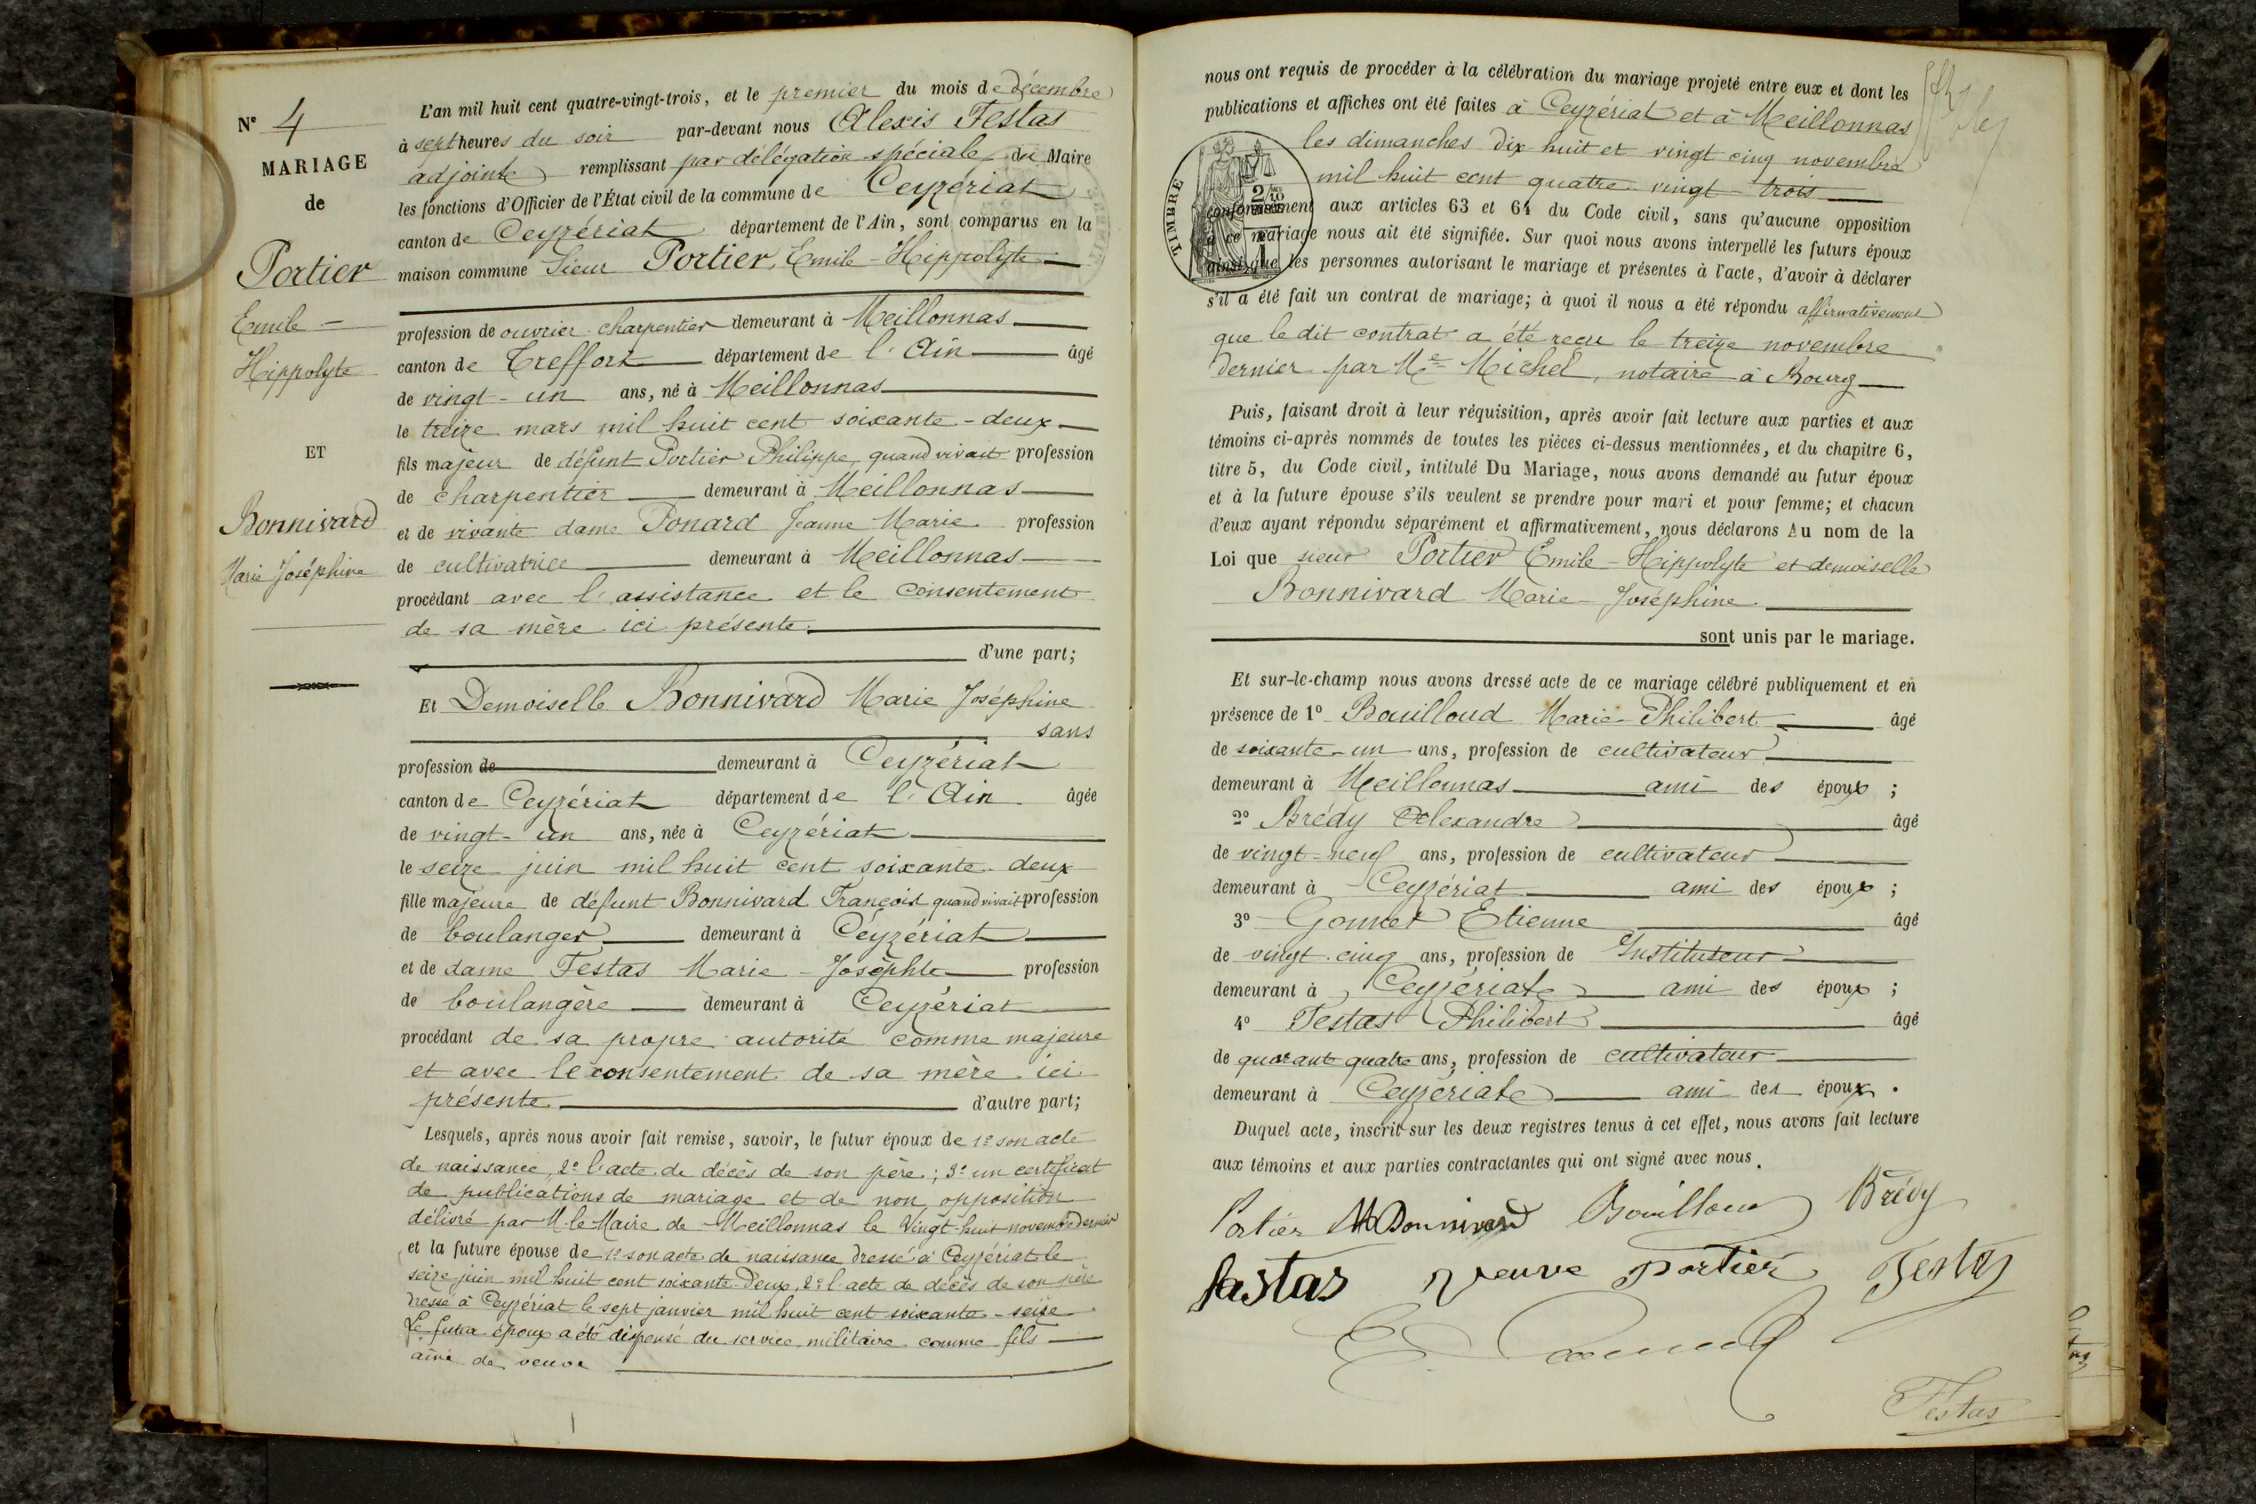 N° 4
MARIAGE
de
Portier
Emile -
Hippolyte
ET
Bonnivard
Marie Joséphine
L'an mil huit cent quatre-vingt-trois, et le premier du mois de décembre
à sept heures du soir par-devant nous Alexis Festas
adjoint remplissant par délégation spéciale du Maire
les fonctions d'Officier de l'État civil de la commune de Ceyzériat
canton de Ceyzériat département de l'Ain, sont comparus en la
maison commune Sieur Portier, Emile - Hippolyte
profession de ouvrier charpentier demeurant à Meillonnas
canton de Treffort département de l'Ain âgé
de vingt-un ans, né à Meillonnas
le treize mars mil huit cent soixante-deux
fils majeur de défunt Portier Philippe, quand vivait profession
de charpentier demeurant à Meillonnas
et de vivante dame Ponard Jeanne Marie profession
de cultivatrice demeurant à Meillonnas
procédant avec l'assistance et le consentement
de sa mère ici présente.
d'une part;
Et Demoiselle Bonnivard Marie Joséphine
sans
profession de demeurant à Ceyzériat
canton de Ceyzériat département de l'Ain âgée
de vingt-un ans, née à Ceyzériat
le seize juin mil huit cent soixante-deux
fille majeure de défunt Bonnivard François quand vivait profession
de boulanger demeurant à Ceyzériat
et de dame Festas Marie-Josephte profession
de boulangère demeurant à Ceyzériat
procédant de sa propre autorité comme majeure
et avec le consentement de sa mère ici
présente d'autre part;
Lesquels, après nous avoir fait remise, savoir, le futur époux de 1° son acte
de naissance, 2° l'acte de décès de son père; 3° un certificat
de publications de mariage et de non opposition
délivré par M. le Maire de Meillonnas le vingt-huit novembre dernier
et la future épouse de 1° son acte de naissance dressé à Ceyzériat le
seize juin mil huit cent soixante-deux, 2° l'acte de décès de son père
dressé à Ceyzériat le sept janvier mil huit cent soixante-seize
Le futur époux a été dispensé du service militaire comme fils
ainé de veuve
nous ont requis de procéder à la célébration du mariage projeté entre eux et dont les
publications et affiches ont été faites à Ceyzériat et à Meillonnas
les dimanches dix huit et vingt cinq novembre
mil huit cent quatre-vingt-trois
TIMBRE
conformément aux articles 63 et 64 du Code civil, sans qu'aucune opposition
à ce mariage nous ait été signifiée. Sur quoi nous avons interpellé les futurs époux
ainsi que les personnes autorisant le mariage et présentes à l'acte, d'avoir à déclarer
s'il a été fait un contrat de mariage; à quoi il nous a été répondu affirmativement
que le dit contrat a été reçu le treize novembre
dernier par Me Michel, notaire à Bourg
Puis, faisant droit à leur réquisition, après avoir fait lecture aux parties et aux
témoins ci-après nommés de toutes les pièces ci-dessus mentionnées, et du chapitre 6,
titre 5, du Code civil, intitulé Du Mariage, nous avons demandé au futur époux
et à la future épouse s'ils veulent se prendre pour mari et pour femme; et chacun
d'eux ayant répondu séparément et affirmativement, nous déclarons Au nom de la
Loi que sieur Portier Emile-Hippolyte et demoiselle
Bonnivard Marie-Joséphine
sont unis par le mariage.
Et sur-le-champ nous avons dressé acte de ce mariage célébré publiquement et en
présence de 1° Bouilloud Marie-Philibert âgé
de soixante-un ans, profession de cultivateur
demeurant à Meillonnas ami des époux ;
2° Brédy Alexandre âgé
de vingt-neuf ans, profession de cultivateur
demeurant à Ceyzériat ami des époux ;
3° Gonnet Etienne âgé
de vingt-cinq ans, profession de Instituteur
demeurant à Ceyzériat ami des époux ;
4° Festas Philibert âgé
de quarante quatre ans, profession de cultivateur
demeurant à Ceyzériat ami des époux.
Duquel acte, inscrit sur les deux registres tenus à cet effet, nous avons fait lecture
aux témoins et aux parties contractantes qui ont signé avec nous.
Portier M Bonnivard Bouilloud Brédy
fastas veuve portier Festas
Festas